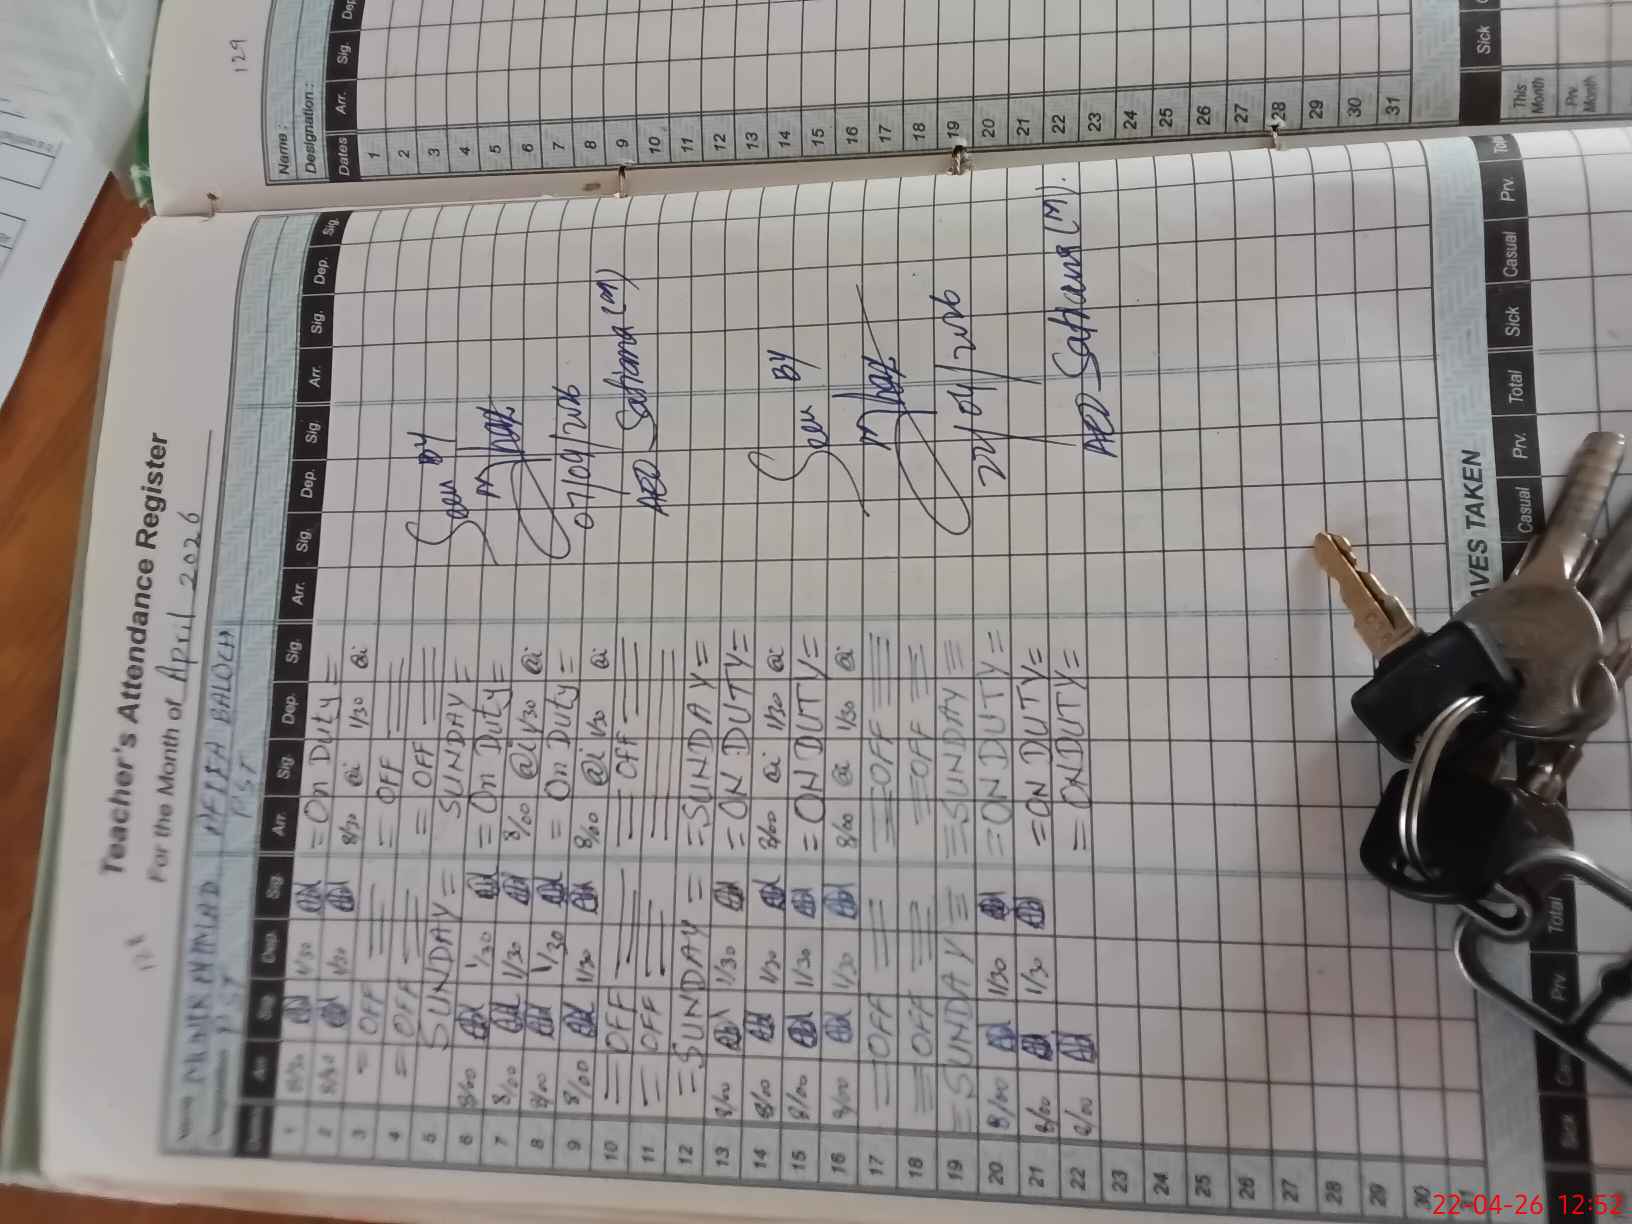 128
Teacher's Attendance Register
For the Month of April 2026
PST PST
Arr. Sig. Dep. Sig. Arr. Sig. Dep. Sig. Arr. Sig. Dep. Sig. Arr. Sig. Dep. Sig.
1 8/30 1/30 = On Duty =
2 8/30 1/30 8/30 @i 1/30 @i
3 = OFF = OFF
4 = OFF = OFF
5 SUNDAY = SUNDAY =
6 8/00 1/30 = On Duty =
7 8/00 1/30 8/00 @i 1/30 @i
8 8/00 1/30 = On Duty =
9 8/00 1/30 8/00 @i 1/30 @i
10 = OFF = OFF
11 = OFF
12 = SUNDAY = = SUNDAY =
13 8/00 1/30 = ON DUTY =
14 8/00 1/30 8/00 @i 1/30 @i
15 8/00 1/30 = ON DUTY =
16 8/00 1/30 8/00 @i 1/30 @i
17 = OFF = OFF
18 = OFF = OFF
19 = SUNDAY = = SUNDAY =
20 8/00 1/30 = ON DUTY =
21 8/00 1/30 = ON DUTY =
22 8/00 = ON DUTY =
23
24
25
26
27
28
29
30
31
Seen By
07/04/2026
AEO Satiana (M)
Seen By
22/04/2026
AEO Satiana (M).
AVES TAKEN
Sick Prv. Total Casual Prv. Total Sick Casual Prv. Tot
129
Name :
Designation :
Dates Arr. Sig. Dep
1
2
3
4
5
6
7
8
9
10
11
12
13
14
15
16
17
18
19
20
21
22
23
24
25
26
27
28
29
30
31
Sick
This Month
Prv. Month
22-04-26 12:52